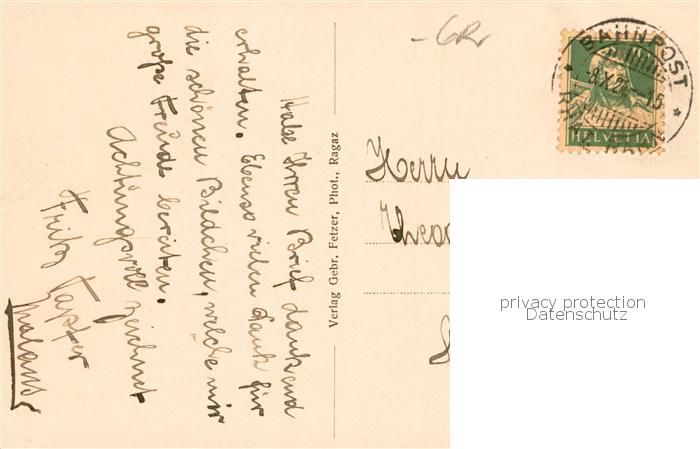 Habe Ihren Brief dankend
erhalten. Ebenso vielen Dank für
die schönen Bildchen, welche mir
große Freude bereiten.
Achtungsvoll zeichnet
Fritz Tapfer
Malans
Verlag Gebr. Felzer, Phot., Ragaz
-GR
Herrn
BAHNPOST
8.X.2
15
HELVETIA
privacy protection
Datenschutz